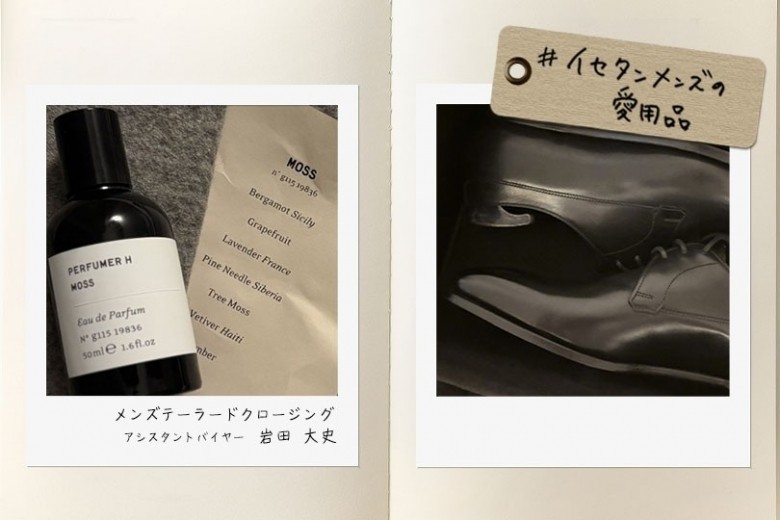 PERFUMER H
MOSS
Eau de Parfum
Nº g115 19836
50ml ℮ 1.6fl.oz
MOSS
nº g115 19836
Bergamot Sicily
Grapefruit
Lavender France
Pine Needle Siberia
Tree Moss
Vetiver Haiti
mber
メンズテーラードクロージング
アシスタントバイヤー 岩田 大史
#イセタンメンズの
愛用品